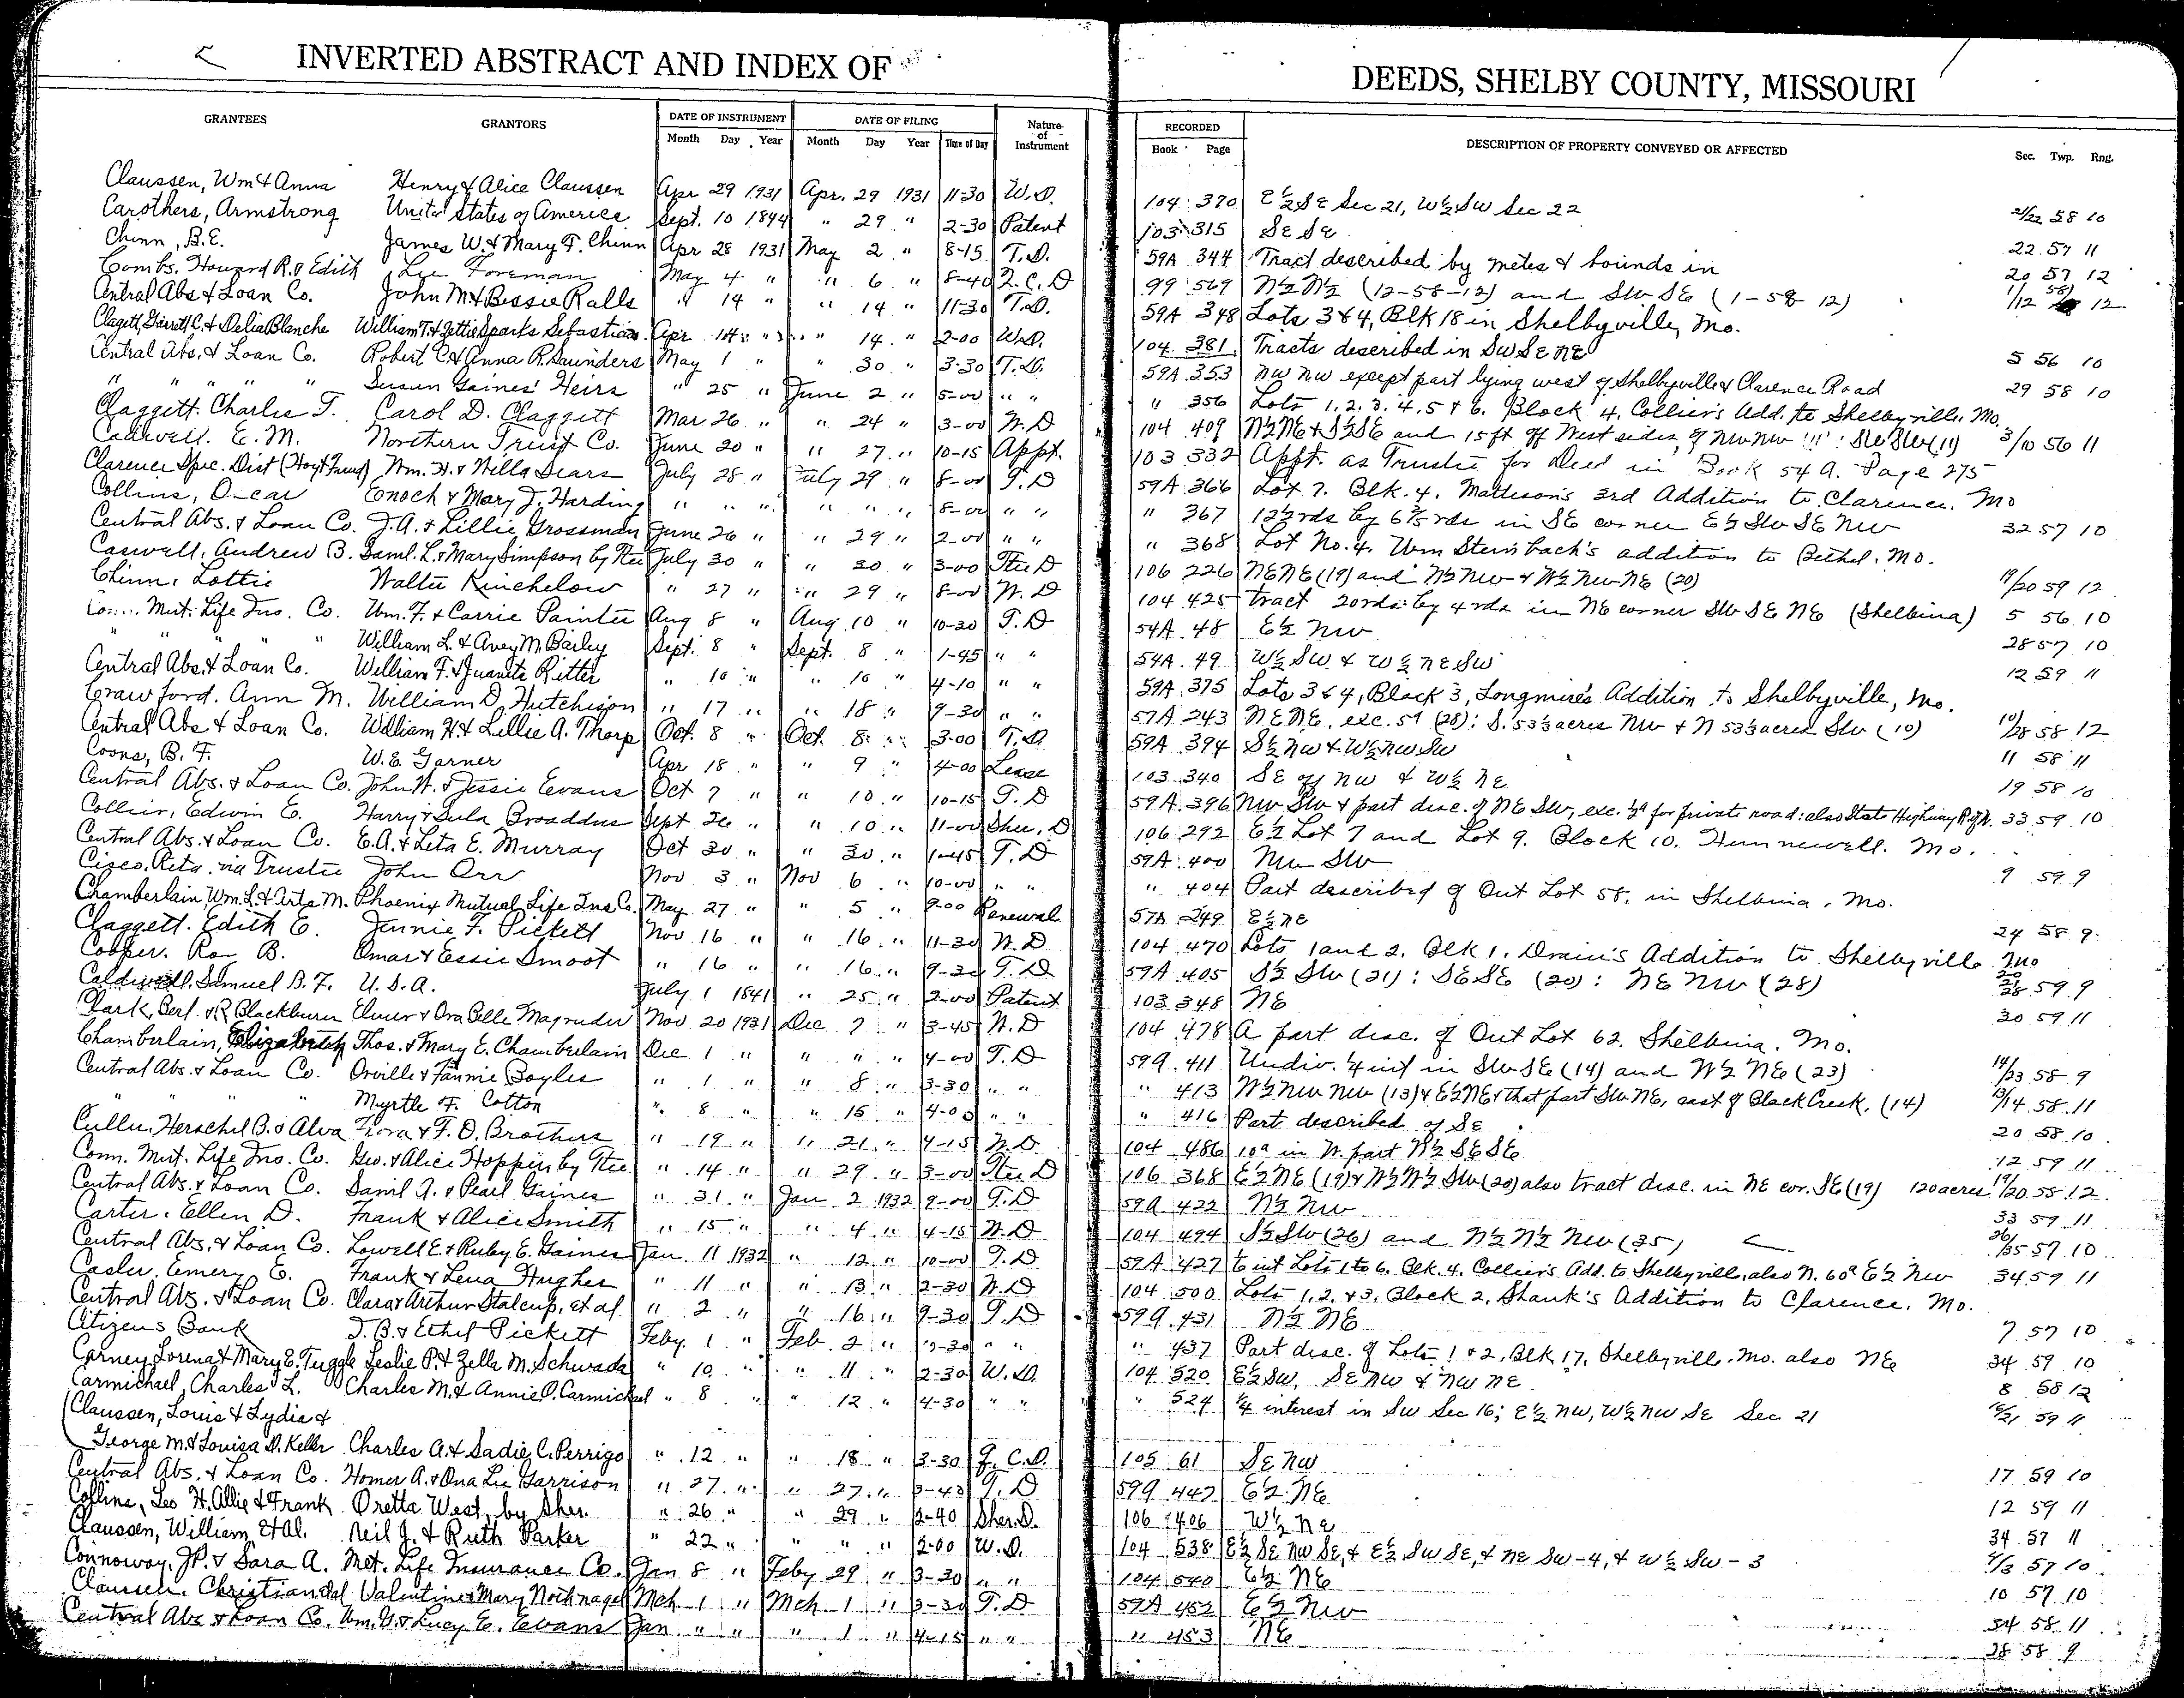 INVERTED ABSTRACT AND INDEX OF DEEDS, SHELBY COUNTY, MISSOURI
GRANTEES GRANTORS DATE OF INSTRUMENT Month Day Year DATE OF FILING Month Day Year Time of Day Nature of Instrument RECORDED Book Page DESCRIPTION OF PROPERTY CONVEYED OR AFFECTED Sec. Twp. Rng.
Claussen, Wm & Anna Henry & Alice Claussen Apr 29 1931 Apr. 29 1931 11-30 W.D. 104 370 E½SE Sec 21, W½SW Sec 22 21/22 58 10
Carothers, Armstrong United States of America Sept. 10 1844 " 29 " 2-30 Patent 103 315 SE SE 22 57 11
Chinn, B.E. James W. & Mary F. Chinn Apr 28 1931 May 2 " 8-15 T.D. 59A 344 Tract described by metes & bounds in 20 57 12
Combs, Howard R. & Edith Lee Foreman May 4 " " 6 " 8-40 Q.C.D 99 569 N½ N½ (12-58-12) and SW SE (1-58-12) 1/12 58 12
Central Abs & Loan Co. John M & Bessie Ralls " 14 " " 14 " 11-30 T.D. 59A 348 Lots 3 & 4, Blk 18 in Shelbyville, Mo.
Clagett, Garrett C. & Delia Blanche William T. & Lettie Sparks Sebastian Apr 14 " " 14 " 2-00 W.D. 104 381 Tracts described in SW SE NE 5 56 10
Central Abs. & Loan Co. Robert C. & Anna R. Saunders May 1 " " 30 " 3-30 T.D. 59A 353 NW NW except part lying west of Shelbyville & Clarence Road 29 58 10
" " " " Susan Gaines' Heirs " 25 " June 2 " 5-00 " " " 356 Lots 1, 2, 3, 4, 5 & 6, Block 4, Collier's Add. to Shelbyville, Mo.
Claggett, Charles T. Carol D. Claggett Mar 26 " " 24 " 3-00 W.D 104 409 N½NE & S½SE and 15 ft off West side of NW NW 3/10 56 11
Cadwell, E. M. Northern Trust Co. June 20 " " 27 " 10-15 Appt. 103 332 Appt. as Trustee for Deed in Book 54 A. Page 275
Clarence Spec. Dist (Hoyt Fund) Wm. H. & Willa Sears July 28 " July 29 " 8-00 T.D 59A 366 Lot 7, Blk. 4, Mattison's 3rd Addition to Clarence, Mo
Collins, Oscar Enoch & Mary J. Harding " " " " " " 8-00 " " " 367 12½rds by 6⅖rds in SE corner E½ SW SE NW 32 57 10
Central Abs. & Loan Co. J.A. & Lillie Grossman June 26 " " 29 " 2-00 " " " 368 Lot No. 4, Wm Steinbach's addition to Bethel, Mo.
Caswell, Andrew B. Saml. L. & Mary Simpson by Tee July 30 " " 30 " 3-00 Tee D 106 226 NENE (19) and N½ NW & N½ NW NE (20) 19/20 59 12
Chinn, Lottie Walter Kinchelow " 27 " " 29 " 8-00 W.D 104 425 tract 20rds by 4 rds in NE corner SW SE NE (Shelbina) 5 56 10
Conn. Mut. Life Ins. Co. Wm. F. & Carrie Painter Aug 8 " Aug 10 " 10-30 T.D 54A 48 E½ NW 28 57 10
" " " " William L. & Avey M. Bailey Sept. 8 " Sept. 8 " 1-45 " " 54A 49 W½ SW & W½ NE SW 12 59 11
Central Abs. & Loan Co. William F. & Juanita Ritter " 10 " " 10 " 4-10 " " 59A 375 Lots 3 & 4, Block 3, Longmire's Addition to Shelbyville, Mo.
Crawford, Ann M. William D. Hutchison " 17 " " 18 " 9-30 " " 57A 243 NE NE, exc. 5ª (28); S. 53⅓ acres NW & N 53⅓ acres SW (10) 10/28 58 12
Central Abs & Loan Co. William H. & Lillie A. Tharp Oct. 8 " Oct. 8 " 3-00 T.D. 59A 394 S½ NW & W½ NW SW 11 58 11
Coons, B. F. W.E. Garner Apr 18 " " 9 " 4-00 Lease 103 340 SE of NW & W½ NE 19 58 10
Central Abs. & Loan Co. John W. & Jessie Evans Oct 7 " " 10 " 10-15 T.D 59A 396 NW SW & part disc. of NE SW, exc. ½ª for private road; also State Highway R of W. 33 59 10
Collier, Edwin E. Harry & Eula Broaddus Sept 26 " " 10 " 11-00 Sher. D 106 292 E½ Lot 7 and Lot 9, Block 10, Hunnewell, Mo.
Central Abs. & Loan Co. E.A. & Leta E. Murray Oct 30 " " 30 " 1-45 T.D 59A 400 NW SW 9 59 9
Cisco, Reta via Trustee John Orr Nov 3 " Nov 6 " 10-00 " " " 404 Part described of Out Lot 58, in Shelbina, Mo.
Chamberlain, Wm. L. & Arta M. Phoenix Mutual Life Ins Co. May 27 " " 5 " 9-00 Renewal 57A 249 E½ NE 24 58 9
Claggett, Edith E. Jennie F. Pickett Nov 16 " " 16 " 11-30 W.D 104 470 Lots 1 and 2, Blk 1, Drain's Addition to Shelbyville Mo
Cooper, Roy B. Omar & Essie Smoot " 16 " " 16 " 9-30 T.D 59A 405 S½ SW (21); SE SE (20); NE NW (28) 20/21/28 59 9
Caldwell, Samuel B. F. U.S.A. July 1 1841 " 25 " 2-00 Patent 103 348 NE 30 59 11
Clark, Berl. & R Blackburn Elmer & Ora Belle Magruder Nov 20 1931 Dec 7 " 3-45 W.D 104 478 A part disc. of Out Lot 62, Shelbina, Mo.
Chamberlain, Elizabeth Thos. & Mary E. Chamberlain Dec 1 " " " " 4-00 T.D 59A 411 Undiv. ¼ int in SW SE (14) and N½ NE (23) 14/23 58 9
Central Abs. & Loan Co. Orville & Fannie Boyles " 1 " " 8 " 3-30 " " " 413 W½ NW NW (13) & E½NE & that part SW NE, east of Black Creek, (14) 13/14 58 11
" " " Myrtle F. Cotton " 8 " " 15 " 4-00 " " " 416 Part described of SE 20 58 10
Culler, Herschel B. & Alva Zora & F. D. Brothers " 19 " " 21 " 4-15 W.D 104 486 10ª in N. part W½ SE SE 12 59 11
Conn. Mut. Life Ins. Co. Geo. & Alice Hoppin by Tee " 14 " " 29 " 3-00 Tee D 106 368 E½ NE (19) & N½ N½ SW (20) also tract disc. in NE cor. SE (19) 120 acres 19/20 58 12
Central Abs. & Loan Co. Saml A. & Pearl Gaines " 31 " Jan 2 1932 9-00 T.D 59A 422 N½ NW 33 59 11
Carter, Ellen D. Frank & Alice Smith " 15 " " 4 " 4-15 W.D 104 494 S½ SW (26) and N½ N½ NW (35) 26/35 57 10
Central Abs. & Loan Co. Lowell E. & Ruby E. Gaines Jan 11 1932 " 12 " 10-00 T.D 59A 427 int Lots 1 to 6, Blk. 4, Collier's Add. to Shelbyville, also N. 60ª E½ NW 34 59 11
Casler, Emery E. Frank & Lena Hughes " 11 " " 13 " 2-30 W.D 104 500 Lots 1, 2, & 3, Block 2, Shank's Addition to Clarence, Mo.
Central Abs. & Loan Co. Clara & Arthur Stalcup, et al " 2 " " 16 " 9-30 T.D 59A 431 N½ NE 7 57 10
Citizens Bank J. B. & Ethel Pickett Feby 1 " Feb. 2 " -30 " " " 437 Part disc. of Lots 1 & 2, Blk 17, Shelbyville, Mo. also NE 34 59 10
Carney, Lorena & Mary E. Tuggle Leslie P. & Zella M. Schwada " 10 " " 11 " 2-30 W.D. 104 520 E½ SW, SE NW & NW NE 8 58 12
Carmichael, Charles L. Charles M. & Annie O. Carmichael " 8 " " 12 " 4-30 " " " 524 ¼ interest in SW Sec 16; E½ NW, W½ NW SE Sec 21 16/21 59 11
Claussen, Louis & Lydia &
George M. & Louisa D. Keller Charles A. & Sadie C. Perrigo " 12 " " 18 " 3-30 Q.C.D. 105 61 SE NW 17 59 10
Central Abs. & Loan Co. Homer A. & Ona Lee Garrison " 27 " " 27 " 3-43 T.D 59A 447 E½ NE 12 59 11
Collins, Leo H, Allie & Frank Oretta West, by Sher. " 26 " " 29 " 2-40 Sher.D. 106 406 W½ NE 34 57 11
Claussen, William, et Al. Neil J. & Ruth Parker " 22 " " " " 2-00 W.D. 104 538 E½ SE NW SE, & E½ SW SE, & NE SW-4, & W½ SW-3 4/3 57 10
Connoway, J.P. & Sara A. Met. Life Insurance Co. Jan 8 " Feby 29 " 3-30 " " 104 540 E½ NE 10 57 10
Claussen, Christian, et al Valentine & Mary Nothnagel Mch 1 " Mch. 1 " 3-30 T.D 59A 452 E½ NW 34 58 11
Central Abs & Loan Co. Wm. G. & Lucy E. Evans Jan " " " 1 " 4-15 " " " 453 NE 28 58 9